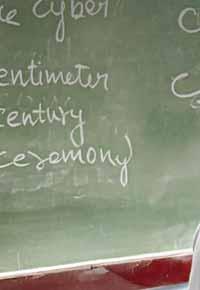 Cyber
entimeter
entury
ceremony